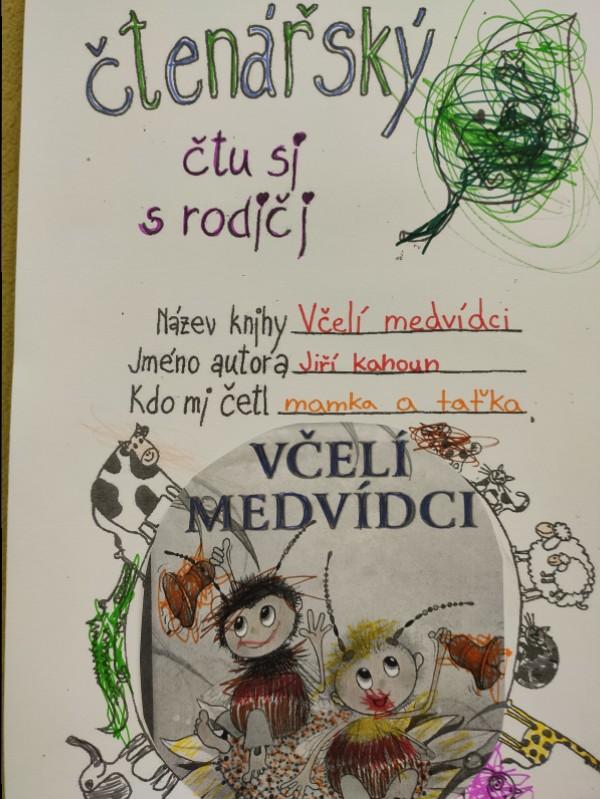 čtenářský
čtu si
s rodiči
Název knihy Včelí medvídci
Jméno autora Jiří kahoun
Kdo mi četl mamka a taťka
VČELÍ
MEDVÍDCI